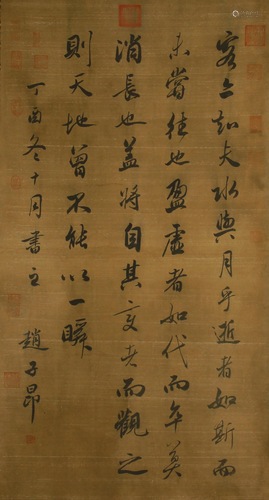 客亦知夫水與月乎逝者如斯而
未嘗往也盈虛者如代而卒莫
消長也蓋將自其變者而觀之
則天地曾不能以一瞬
丁酉冬十月書之 趙子昂